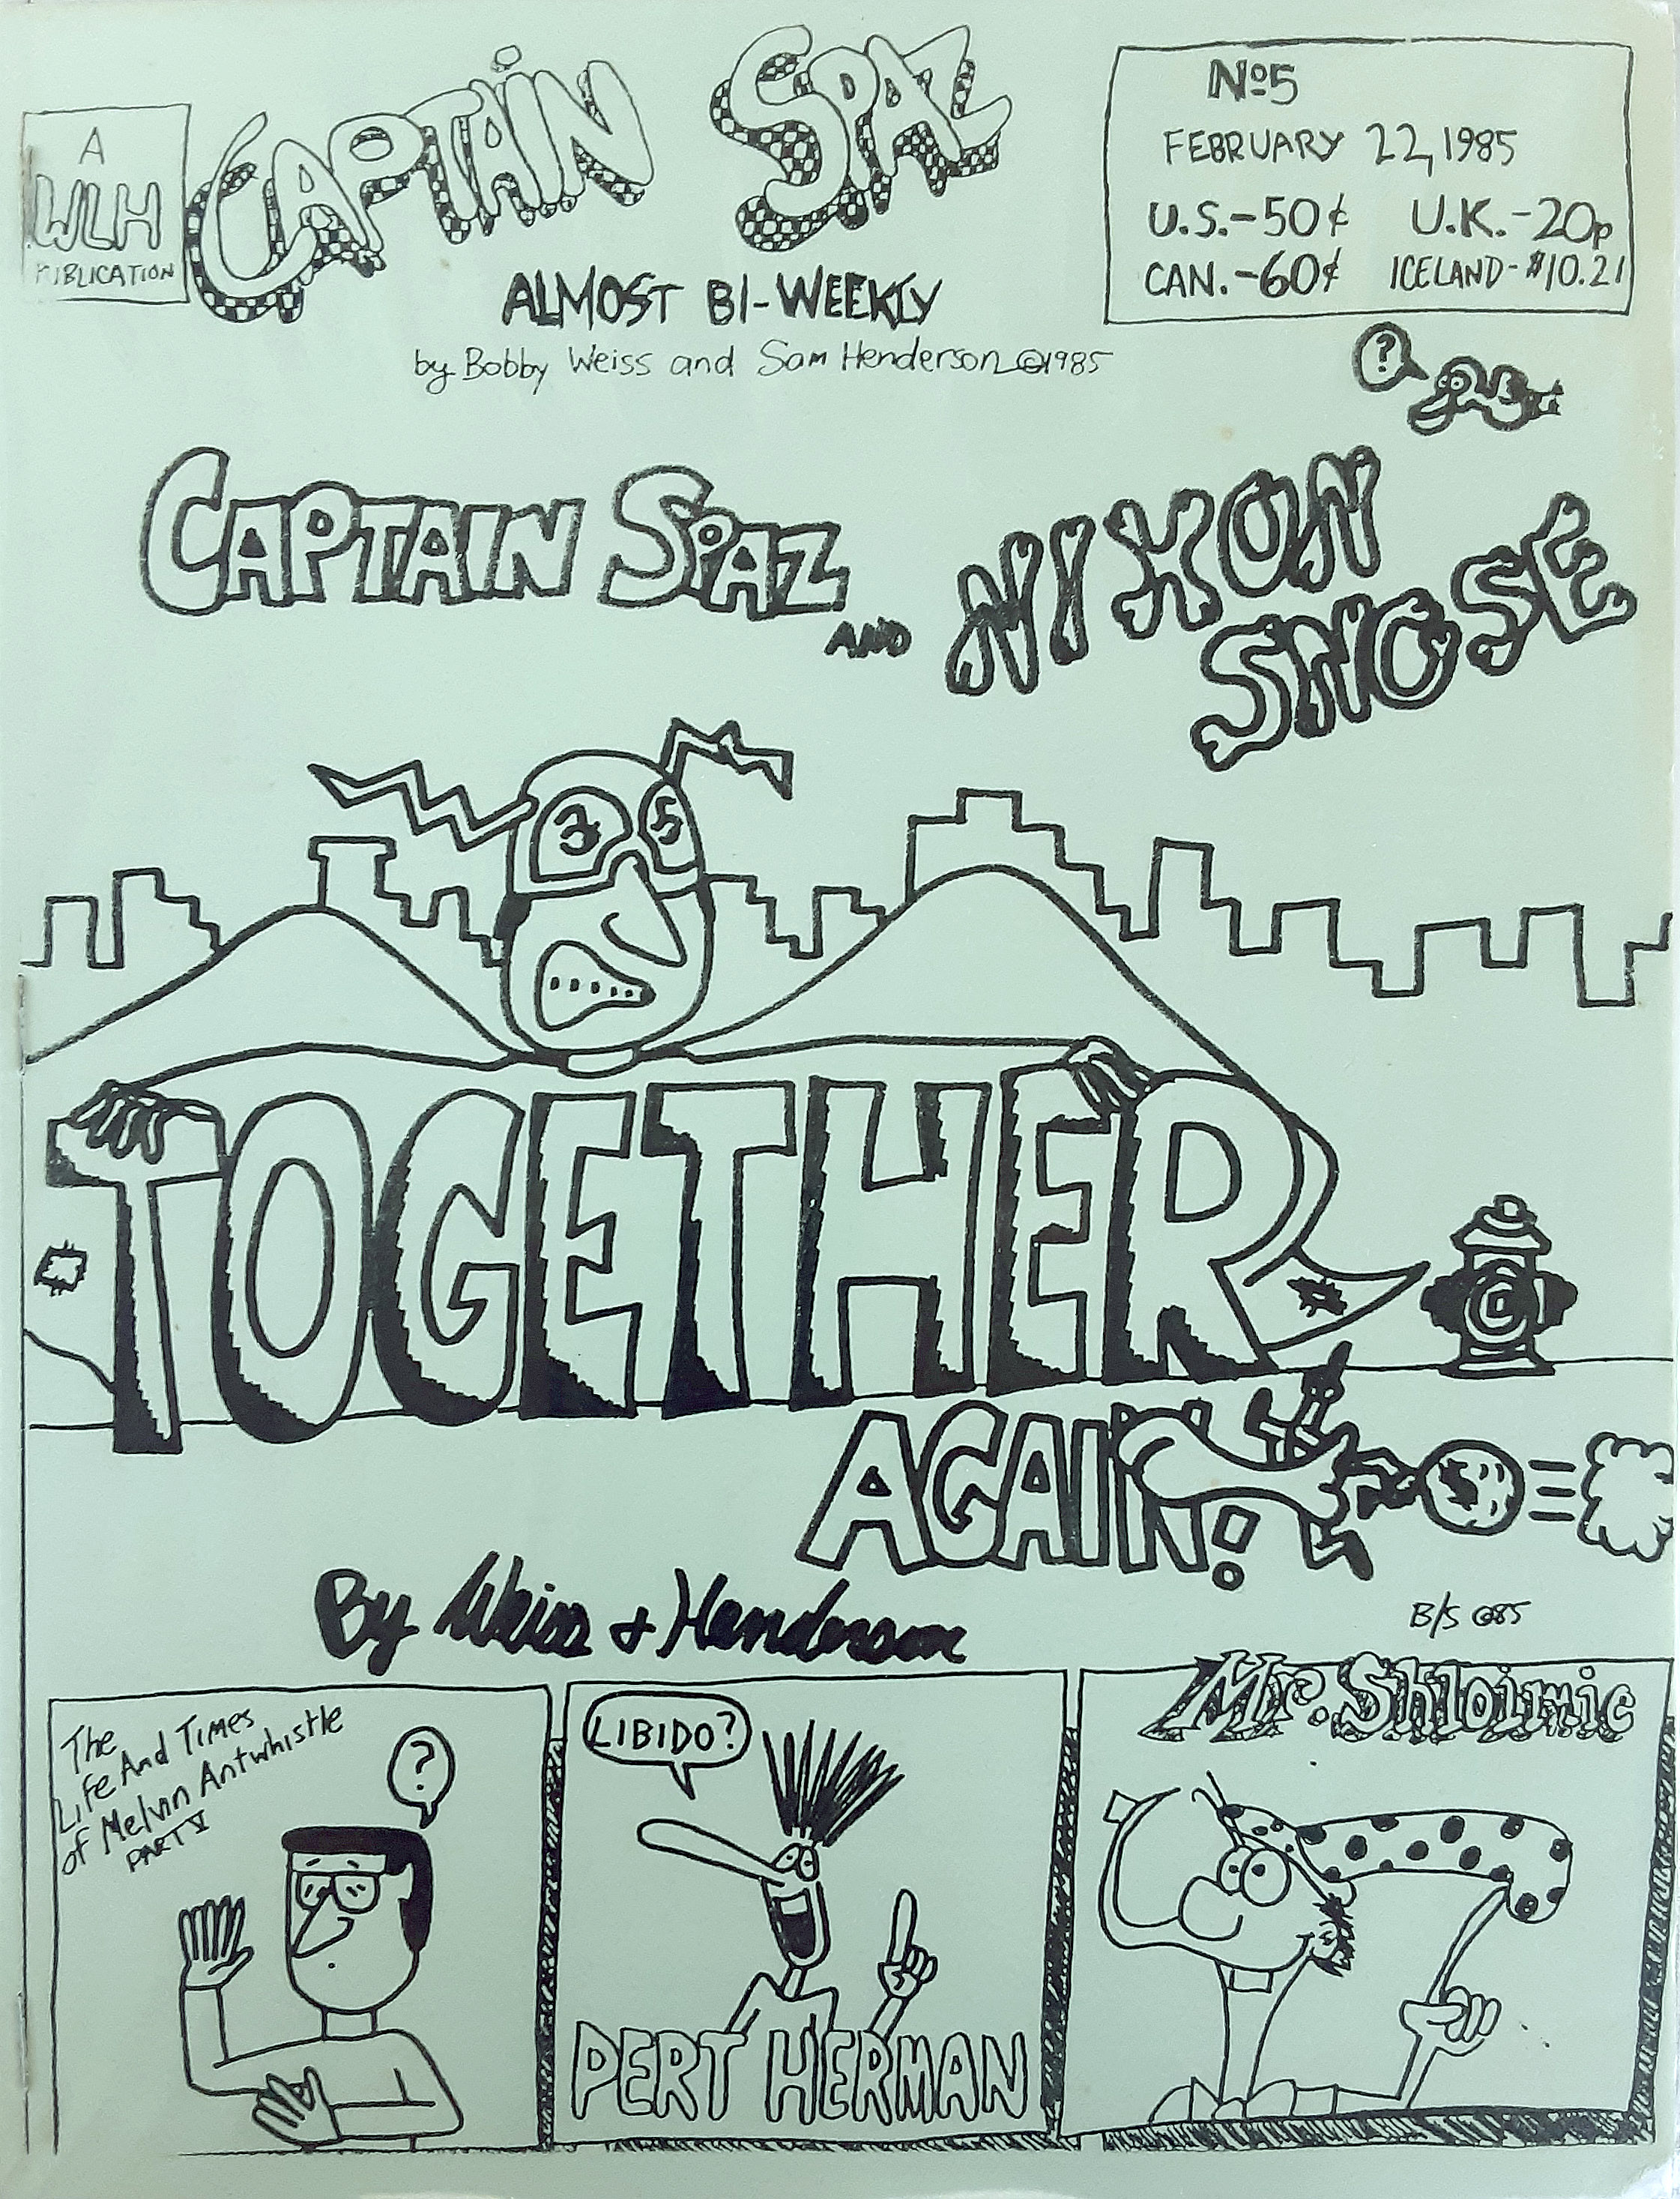 A
WLH
PUBLICATION
CAPTAIN SPAZ
ALMOST BI-WEEKLY
by Bobby Weiss and Sam Henderson ©1985
No5
FEBRUARY 22, 1985
U.S.-50¢ U.K.-20p
CAN.-60¢ ICELAND-$10.21
?
CAPTAIN SPAZ
AND
NIXON
SNOSE
3 5
TOGETHER
AGAIN!
By Weiss + Henderson
B/S ©85
The
Life And Times
of Melvin Antwhistle
PART V
?
LIBIDO?
PERT HERMAN
Mr. Shloimie